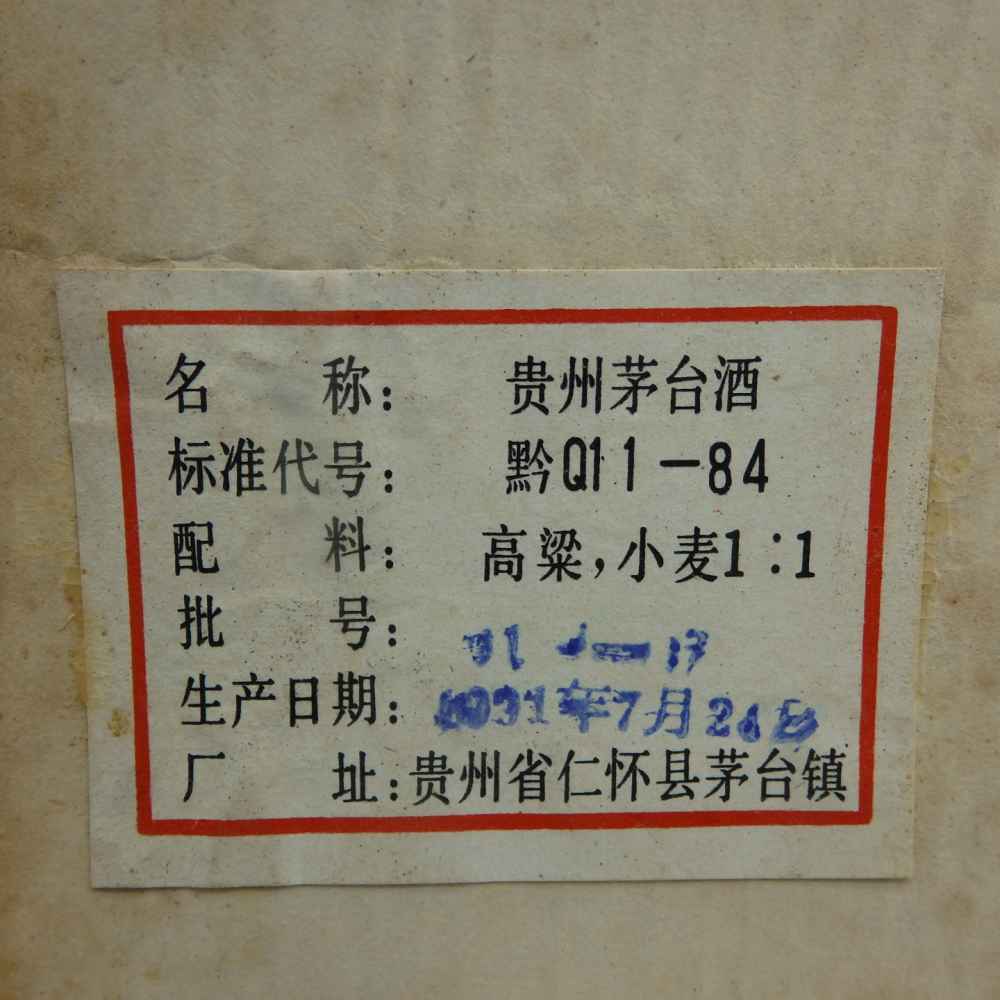 名 称： 贵州茅台酒
标准代号： 黔Q11-84
配 料： 高粱，小麦1:1
批 号：
生产日期： 1991年7月 日
厂 址：贵州省仁怀县茅台镇